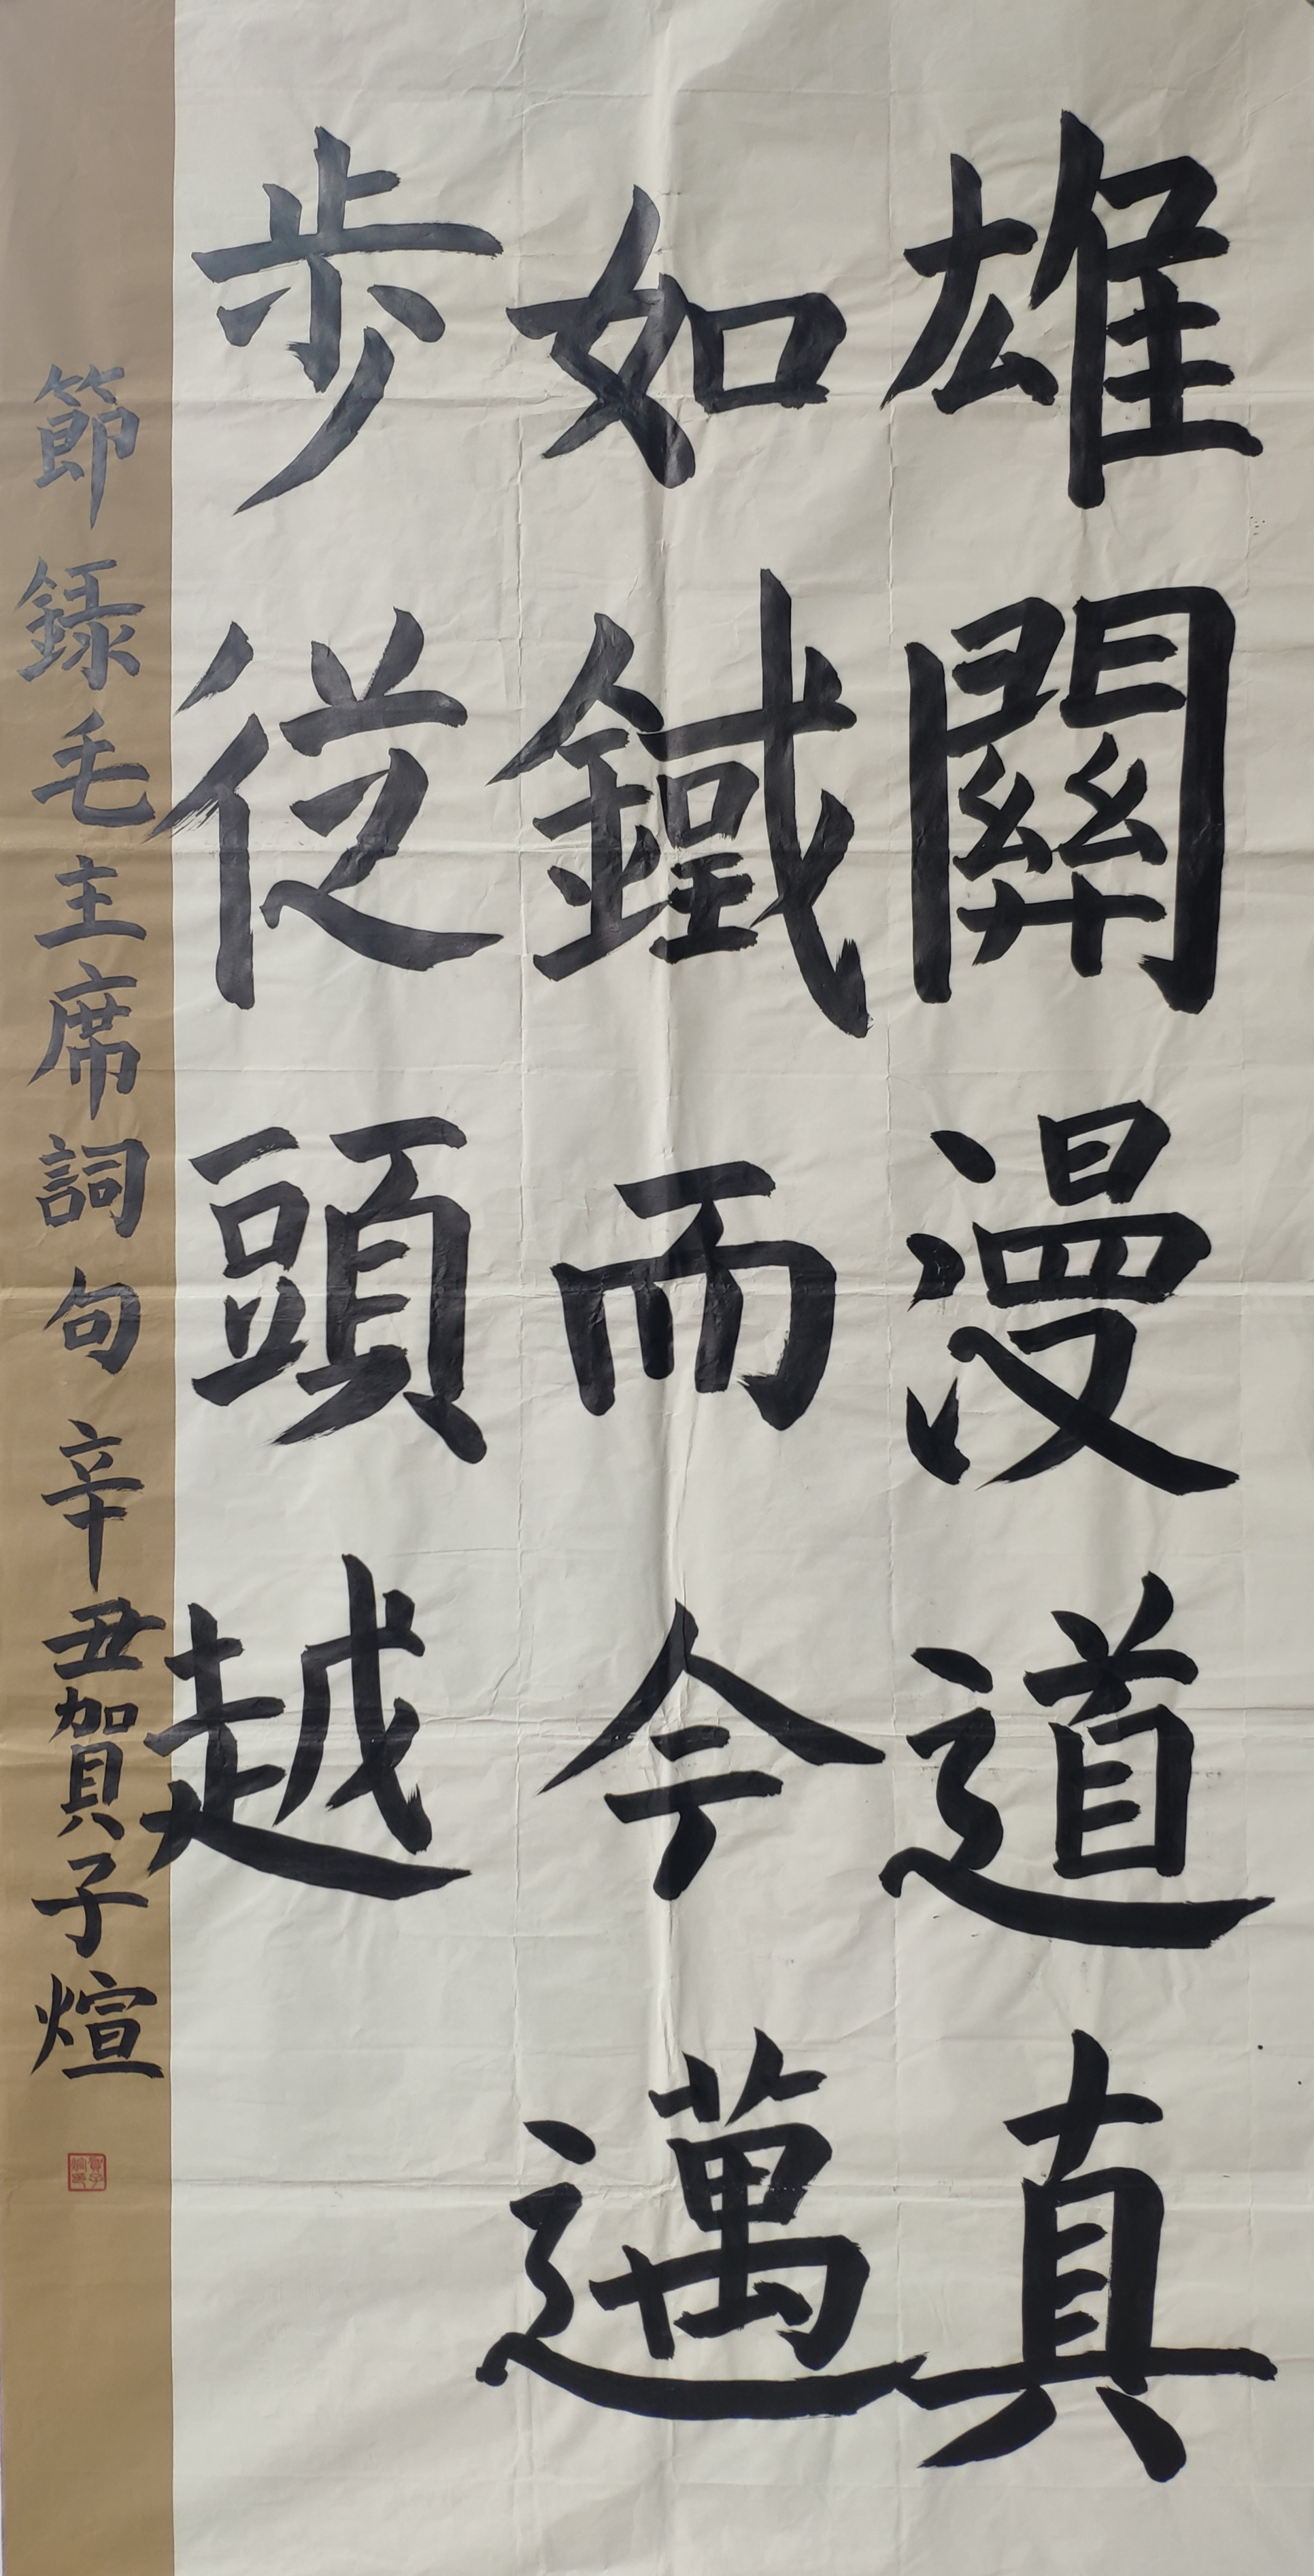 雄關漫道真
如鐵而今邁
步從頭越
節録毛主席詞句 辛丑賀子煊